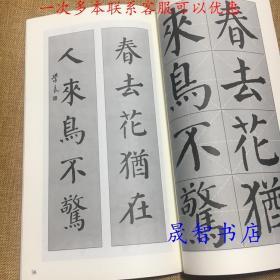 一次多本联系客服可以优惠
春去花猶在
人來鳥不驚
春去花猶
來鳥不驚
晟智书店